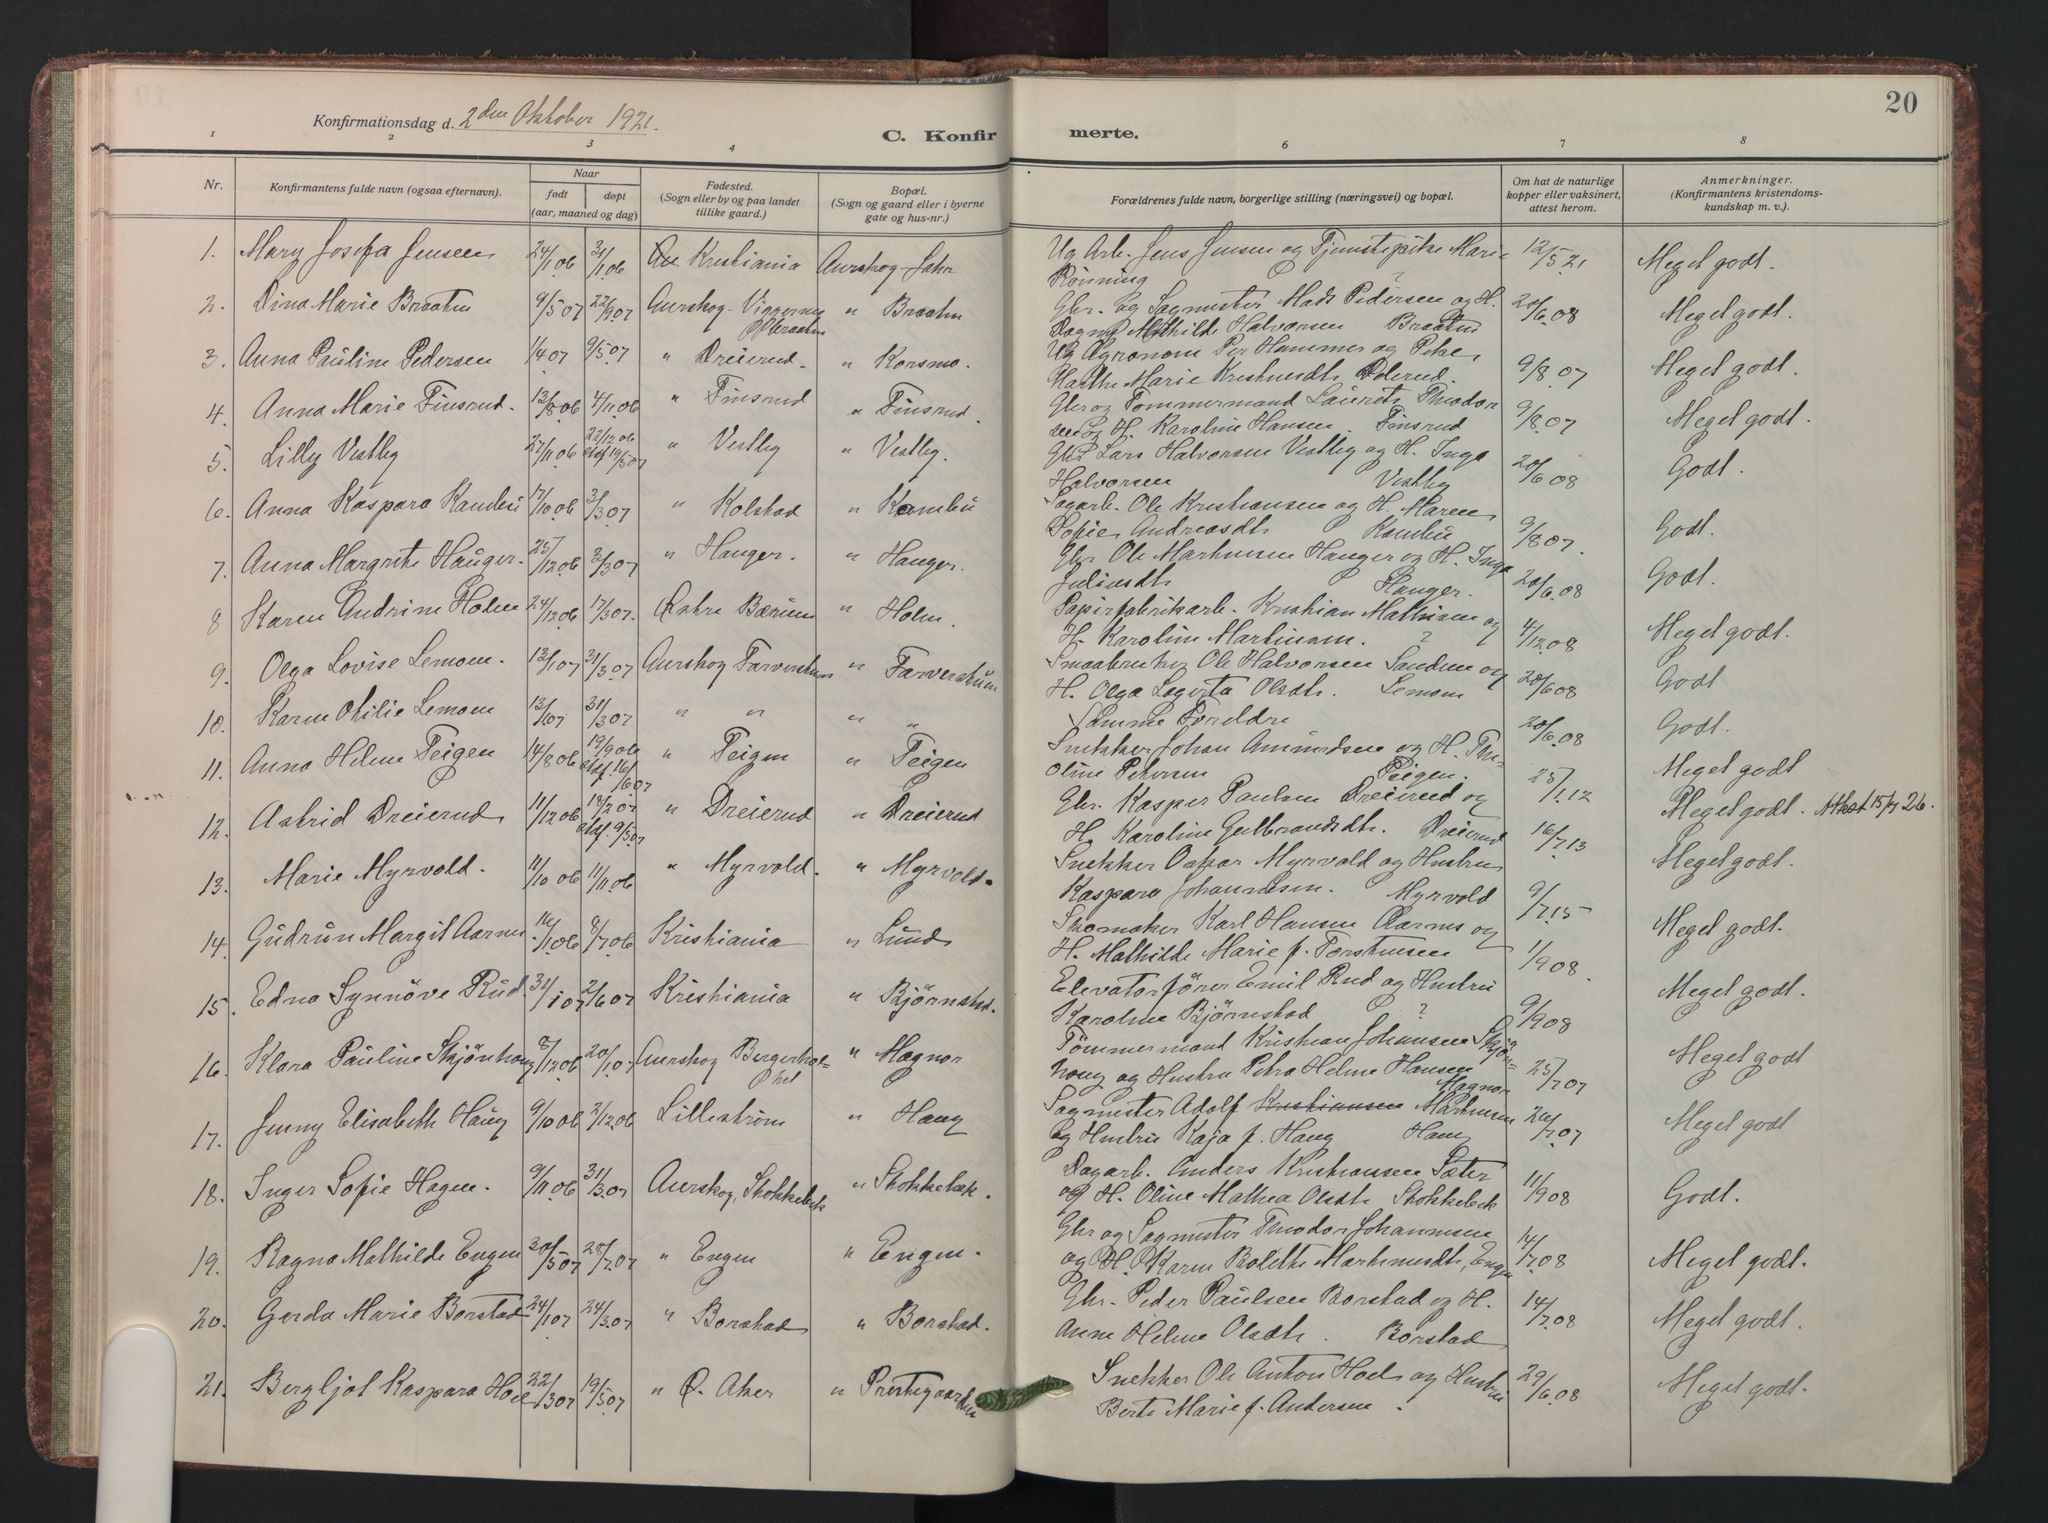 20
Konfirmationsdag d. 2den Oktober 1921.
C. Konfirmerte.
1 2 3 4 6 7 8
Nr.
Konfirmantens fulde navn (ogsaa efternavn).
Naar
født døpt
(aar, maaned og dag)
Fødested.
(Sogn eller by og paa landet
tillike gaard.)
Bopæl.
(Sogn og gaard eller i byerne
gate og hus-nr.)
Forældrenes fulde navn, borgerlige stilling (næringsvei) og bopæl.
Om hat de naturlige
kopper eller vaksinert,
attest herom.
Anmerkninger.
(Konfirmantens kristendoms-
kundskap m. v.).
1. Mary Josefa Jensen 24/1 06 31/1 06 Kristiania Aurskog Ug. Arb. Jens Jensen og Tjenestepike Marie 12/5 21 Meget godt.
Rönning ?
2. Dina Marie Braaten 9/5 07 22/9 07 Aurskog " Braaten Gbr. og Sagmester Mads Pedersen og H. 20/6 08 Meget godt.
Dagny Mathilde Halvorsen Braaten
3. Anna Pauline Pedersen 1/4 07 9/5 07 " Dreierud " Korsmo. Ug. Agronom Per Hammer og Pike 9/8 07 Meget godt.
Marthe Marie Kristiansdt.
4. Anna Marie Finsrud. 13/8 06 4/11 06 " Finsrud " Finsrud. Gbr og Tømmermand Laurits Theodor 9/8 07 Meget godt.
sen og H. Karoline Hansen. Finsrud
5. Lilly Vestby 27/11 06 22/12 06 " Vestby " Vestby. Gbr Lars Halvorsen Vestby og H. Inga 20/6 08 Godt.
stsf 19/5 07
Halvorsen Vestby
6. Anna Kaspara Kambu 17/10 06 3/3 07 " Kolstad " Kambu Sagarb. Ole Kristiansen og H. Maren 9/8 07. Godt.
Sofie Andreasdt. Kambu
7. Anna Margrete Hauger. 25/12 06 3/3 07 " Hauger. " Hauger. Gbr. Ole Martinsen Hauger og H. Inga 20/6 08 Godt.
Juliusdt. Hauger.
8 Karen Andrine Holm 24/12 06 17/3 07. Østre Bærum " Holm. Papirfabrikarb. Kristian Mathisen og 4/12 08 Meget godt.
H. Karoline Martinsen. ?
9. Olga Lovise Lemoen. 13/1 07 31/3 07 Aurskog Tæverstuen " Tæverstuen Smaabruker Ole Halvorsen Sanden og 20/6 08 Godt
H. Olga Lagerta Olsdt. Lemoen
10. Karen Otilie Lemoen 13/1 07 31/3 07 " " " " Samme Foreldre 20/6 08 Godt.
11. Anna Helene Teigen 14/8 06 19/9 06 " Teigen " Teigen Snekker Johan Amundsen og H. The- 25/1 12 Meget godt
stsf. 16/6 07
oline Petersen Teigen.
12. Astrid Dreierud 11/12 06 18/2 07 " Dreierud " Dreierud Gbr. Kasper Paulsen Dreierud og 16/7 13 Meget godt. Attest 15/7 26.
stsf. 9/5 07
H. Karoline Gulbrandsdt. Dreierud
13. Marie Myrvold. 11/10 06 11/11 06 " Myrvold. " Myrvold. Snekker Oskar Myrvold og Hustru 9/7 15 Meget godt.
Kaspara Johannesen. Myrvold
14. Gudrun Margit Aarnes 16/1 06 8/7 06 Kristiania " Lund Skomaker Karl Hansen Aarnes og 1/9 08. Meget godt.
H. Mathilde Marie f. Torstensen
15. Edna Synnöve Rud. 31/1 07 2/6 07 Kristiania " Bjørnstad. Elevatorfører Emil Rud og Hustru 9/9 08 Meget godt.
Karoline Bjørnstad ?
16. Klara Pauline Skjönhaug 8/12 06 20/1 07 Aurskog " Magnor Tömmermand Kristian Johansen Skjön- 25/7 07 Meget godt
haug og Hustru Petra Helene Hansen
Magnor
17. Jenny Elisabeth Haug 9/10 06 2/12 06 Lilleström " Haug Sagmester Adolf Kristiansen Martinsen 26/7 07 Meget godt
og Hustru Kaja f. Haug Haug
18. Inger Sofie Hagen. 9/11 06 31/3 07 Aurskog, Stokkebæk " Stokkebæk. Dagarb. Anders Kristiansen Sæter 11/9 08 Godt.
og H. Oline Mathea Olsdt. Stokkebæk
19. Ragna Mathilde Engen 30/5 07 28/7 07 " Engen " Engen. Gbr og Sagmester Theodor Johannesen 14/7 08 Meget godt.
og H. Karen Bolette Martinusdt. Engen
20. Gerda Marie Borstad 24/1 07 24/3 07 " Borstad " Borstad. Gbr. Peder Paulsen Borstad og H. 14/7 08 Meget godt.
Anne Helene Olsdt. Borstad
21. Bergljot Kaspara Hoel 22/3 07 19/5 07 " Ö. Aker " Prestegaarden Snekker Ole Anton Hoel og Hustru 29/6 08 Meget godt.
Berte Marie f. Andersen.